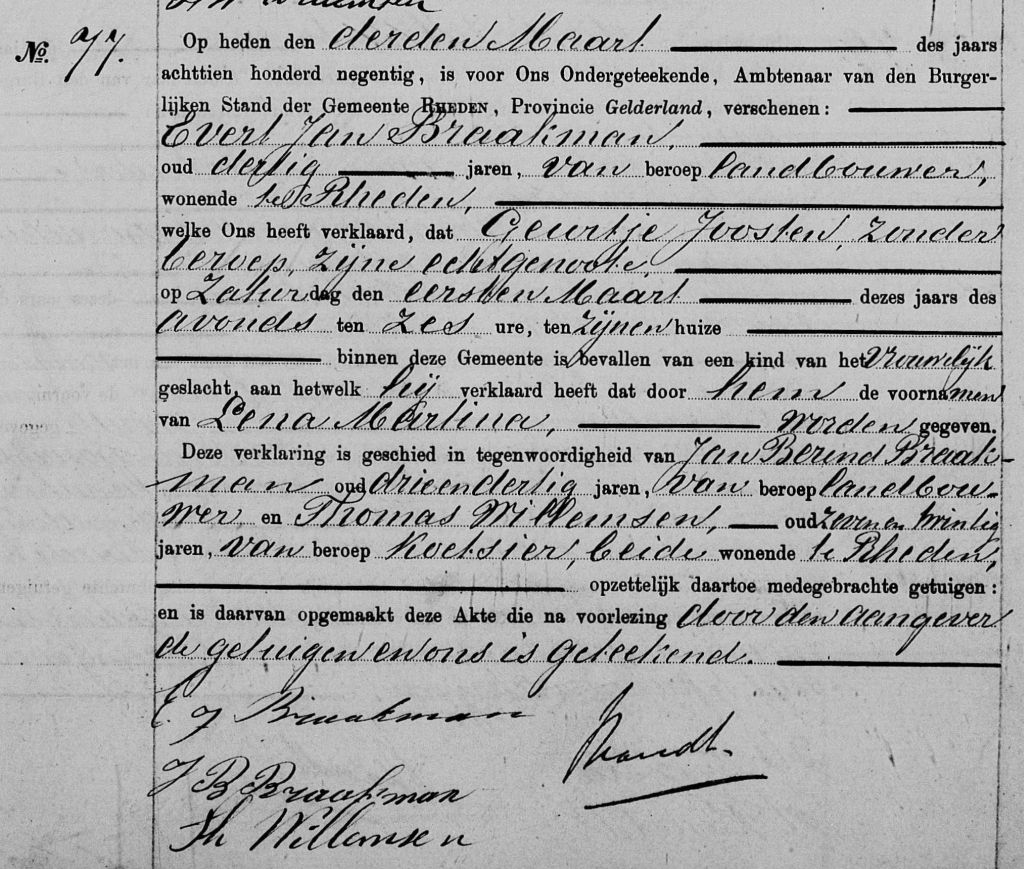 Willemsen
No. 77.
Op heden den derden Maart des jaars
achttien honderd negentig, is voor Ons Ondergeteekende, Ambtenaar van den Burger-
lijken Stand der Gemeente RHEDEN, Provincie Gelderland, verschenen:
Evert Jan Braakman,
oud dertig jaren, van beroep landbouwer,
wonende te Rheden,
welke Ons heeft verklaard, dat Geurtje Joosten, zonder
beroep, zijne echtgenoote,
op Zaturdag den eersten Maart dezes jaars des
avonds ten zes ure, ten zijnen huize
binnen deze Gemeente is bevallen van een kind van het vrouwelijk
geslacht, aan hetwelk hij verklaard heeft dat door hem de voornamen
van Lena Martina, worden gegeven.
Deze verklaring is geschied in tegenwoordigheid van Jan Berend Braak-
man oud drieendertig jaren, van beroep landbou-
wer, en Thomas Willemsen, oud zeven en twintig
jaren, van beroep koetsier, beide wonende te Rheden,
opzettelijk daartoe medegebrachte getuigen:
en is daarvan opgemaakt deze Akte die na voorlezing door den aangever
de getuigen en ons is geteekend.
E J Braakman
J B Braakman
Th Willemsen